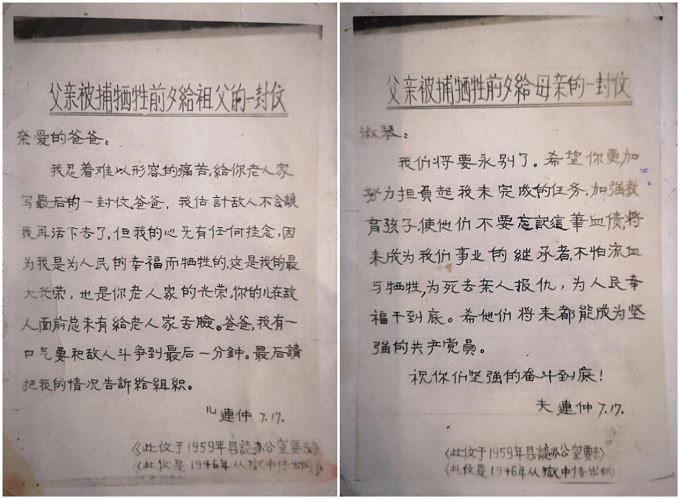 父亲被捕牺牲前夕給祖父的一封仪
亲爱的爸爸：
我忍着难以形容的痛苦給你老人家
写最后的一封仪。爸爸，我估計敌人不会讓
我再活下去了，但我的心无有任何挂念，因
为我是为人民的幸福而牺牲的，这是我的最
大光荣，也是你老人家的光荣，你的儿在敌
人面前总未有給老人家丢臉。爸爸，我有一
口气要和敌人斗争到最后一分鐘。最后請
把我的情况告訴給組織。
儿 連仲 7.17.
《此仪于1959年县誌办公室要去》
《此仪是1946年从獄中传出的》
父亲被捕牺牲前夕給母亲的一封仪
淑琴：
我们将要永别了。希望你更加
努力担負起我未完成的任务，加强教
育孩子使他们不要忘記這筆血债，将
来成为我们事业的继承者，不怕流血
与牺牲，为死去亲人报仇，为人民幸
福干到底。希他们将来都能成为坚
强的共产党員。
祝你们坚强的奋斗到底！
夫 連仲 7.17.
《此仪于1959年县誌办公室要去》
《此仪是1946年从獄中传出的》